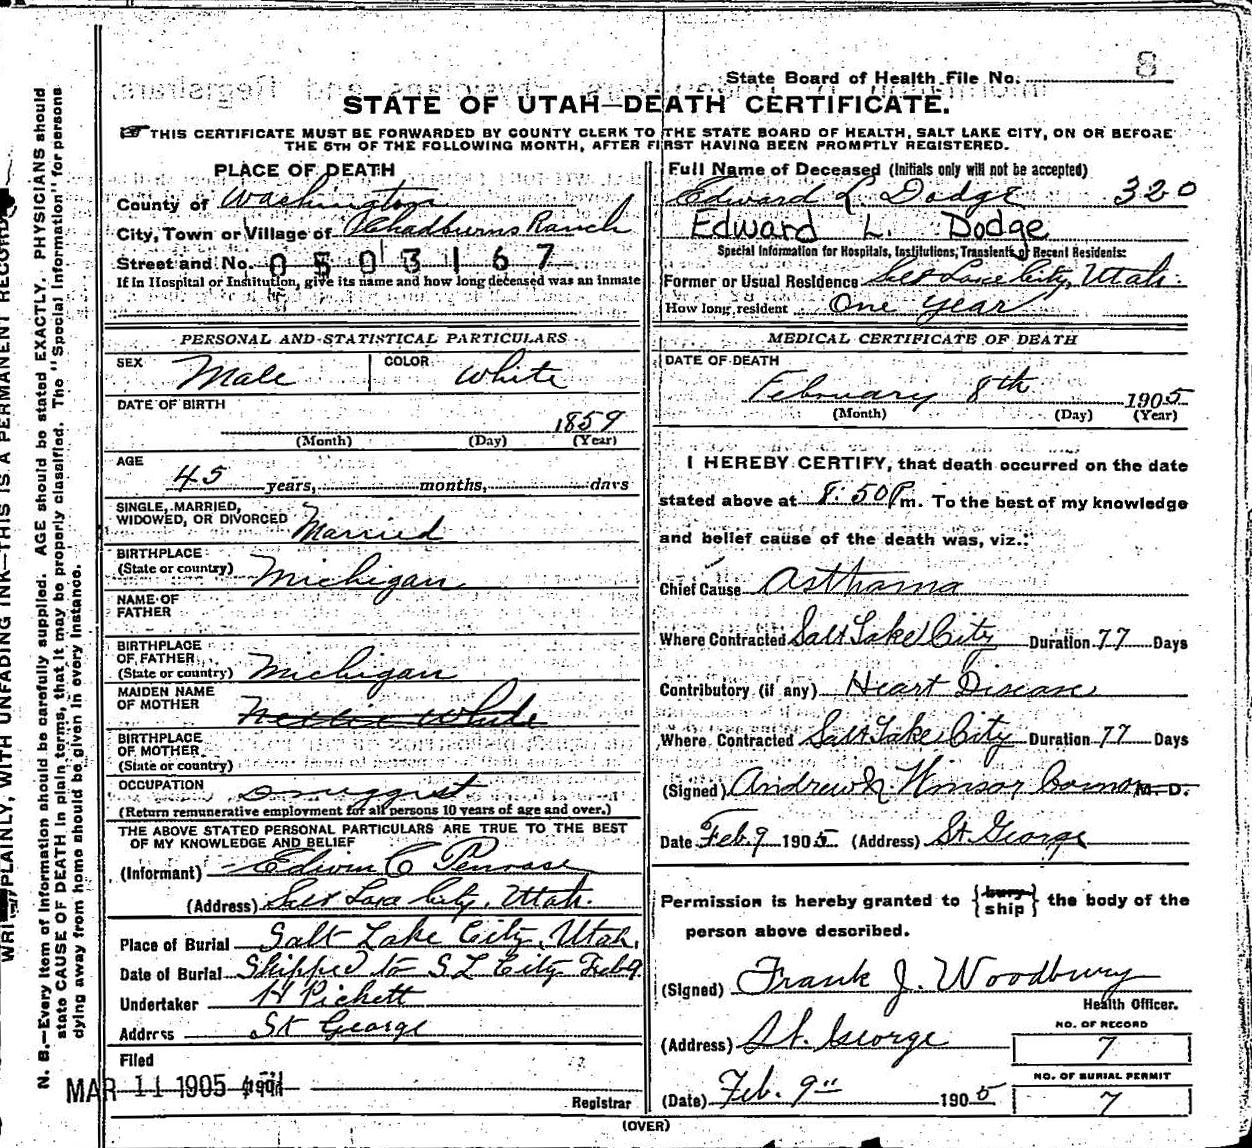 State Board of Health File No. 8
STATE OF UTAH—DEATH CERTIFICATE.
THIS CERTIFICATE MUST BE FORWARDED BY COUNTY CLERK TO THE STATE BOARD OF HEALTH, SALT LAKE CITY, ON OR BEFORE
THE 5TH OF THE FOLLOWING MONTH, AFTER FIRST HAVING BEEN PROMPTLY REGISTERED.
PLACE OF DEATH
County of Washington
City, Town or Village of Chadburns Ranch
Street and No. 0503167
If in Hospital or Institution, give its name and how long deceased was an inmate
Full Name of Deceased (Initials only will not be accepted)
Edward L. Dodge 320
Edward L. Dodge
Special Information for Hospitals, Institutions, Transients or Recent Residents:
Former or Usual Residence Salt Lake City, Utah.
How long resident One year
PERSONAL AND STATISTICAL PARTICULARS
SEX Male COLOR White
DATE OF BIRTH
1859
(Month) (Day) (Year)
AGE
45 years, months, days
SINGLE, MARRIED,
WIDOWED, OR DIVORCED Married
BIRTHPLACE
(State or country) Michigan
NAME OF
FATHER
BIRTHPLACE
OF FATHER
(State or country) Michigan
MAIDEN NAME
OF MOTHER Nellie White
BIRTHPLACE
OF MOTHER
(State or country)
OCCUPATION
(Return remunerative employment for all persons 10 years of age and over.)
THE ABOVE STATED PERSONAL PARTICULARS ARE TRUE TO THE BEST
OF MY KNOWLEDGE AND BELIEF
(Informant) Edwin C Penrose
(Address) Salt Lake City, Utah.
Place of Burial Salt Lake City, Utah,
Date of Burial Shipped to S L City Feb 9
Undertaker H Pickett
Address St George
Filed
MAR 11 1905 190
Registrar
MEDICAL CERTIFICATE OF DEATH
DATE OF DEATH
February 8th 1905
(Month) (Day) (Year)
I HEREBY CERTIFY, that death occurred on the date
stated above at 8:50 P m. To the best of my knowledge
and belief cause of the death was, viz.:
Chief Cause Asthama
Where Contracted Salt Lake City Duration 77 Days
Contributory (if any) Heart Disease
Where Contracted Salt Lake City Duration 77 Days
(Signed) Andrew N. Winsor M. D.
Date Feb. 9 1905 (Address) St George
Permission is hereby granted to {bury ship} the body of the
person above described.
(Signed) Frank J. Woodbury
Health Officer.
(Address) St. George
NO. OF RECORD
7
(Date) Feb. 9" 1905
NO. OF BURIAL PERMIT
7
(OVER)
N. B.—Every item of information should be carefully supplied. AGE should be stated EXACTLY. PHYSICIANS should
state CAUSE OF DEATH in plain terms, that it may be properly classified. The "Special Information" for persons
dying away from home should be given in every instance.
PLAINLY, WITH UNFADING INK—THIS IS A PERMANENT RECORD